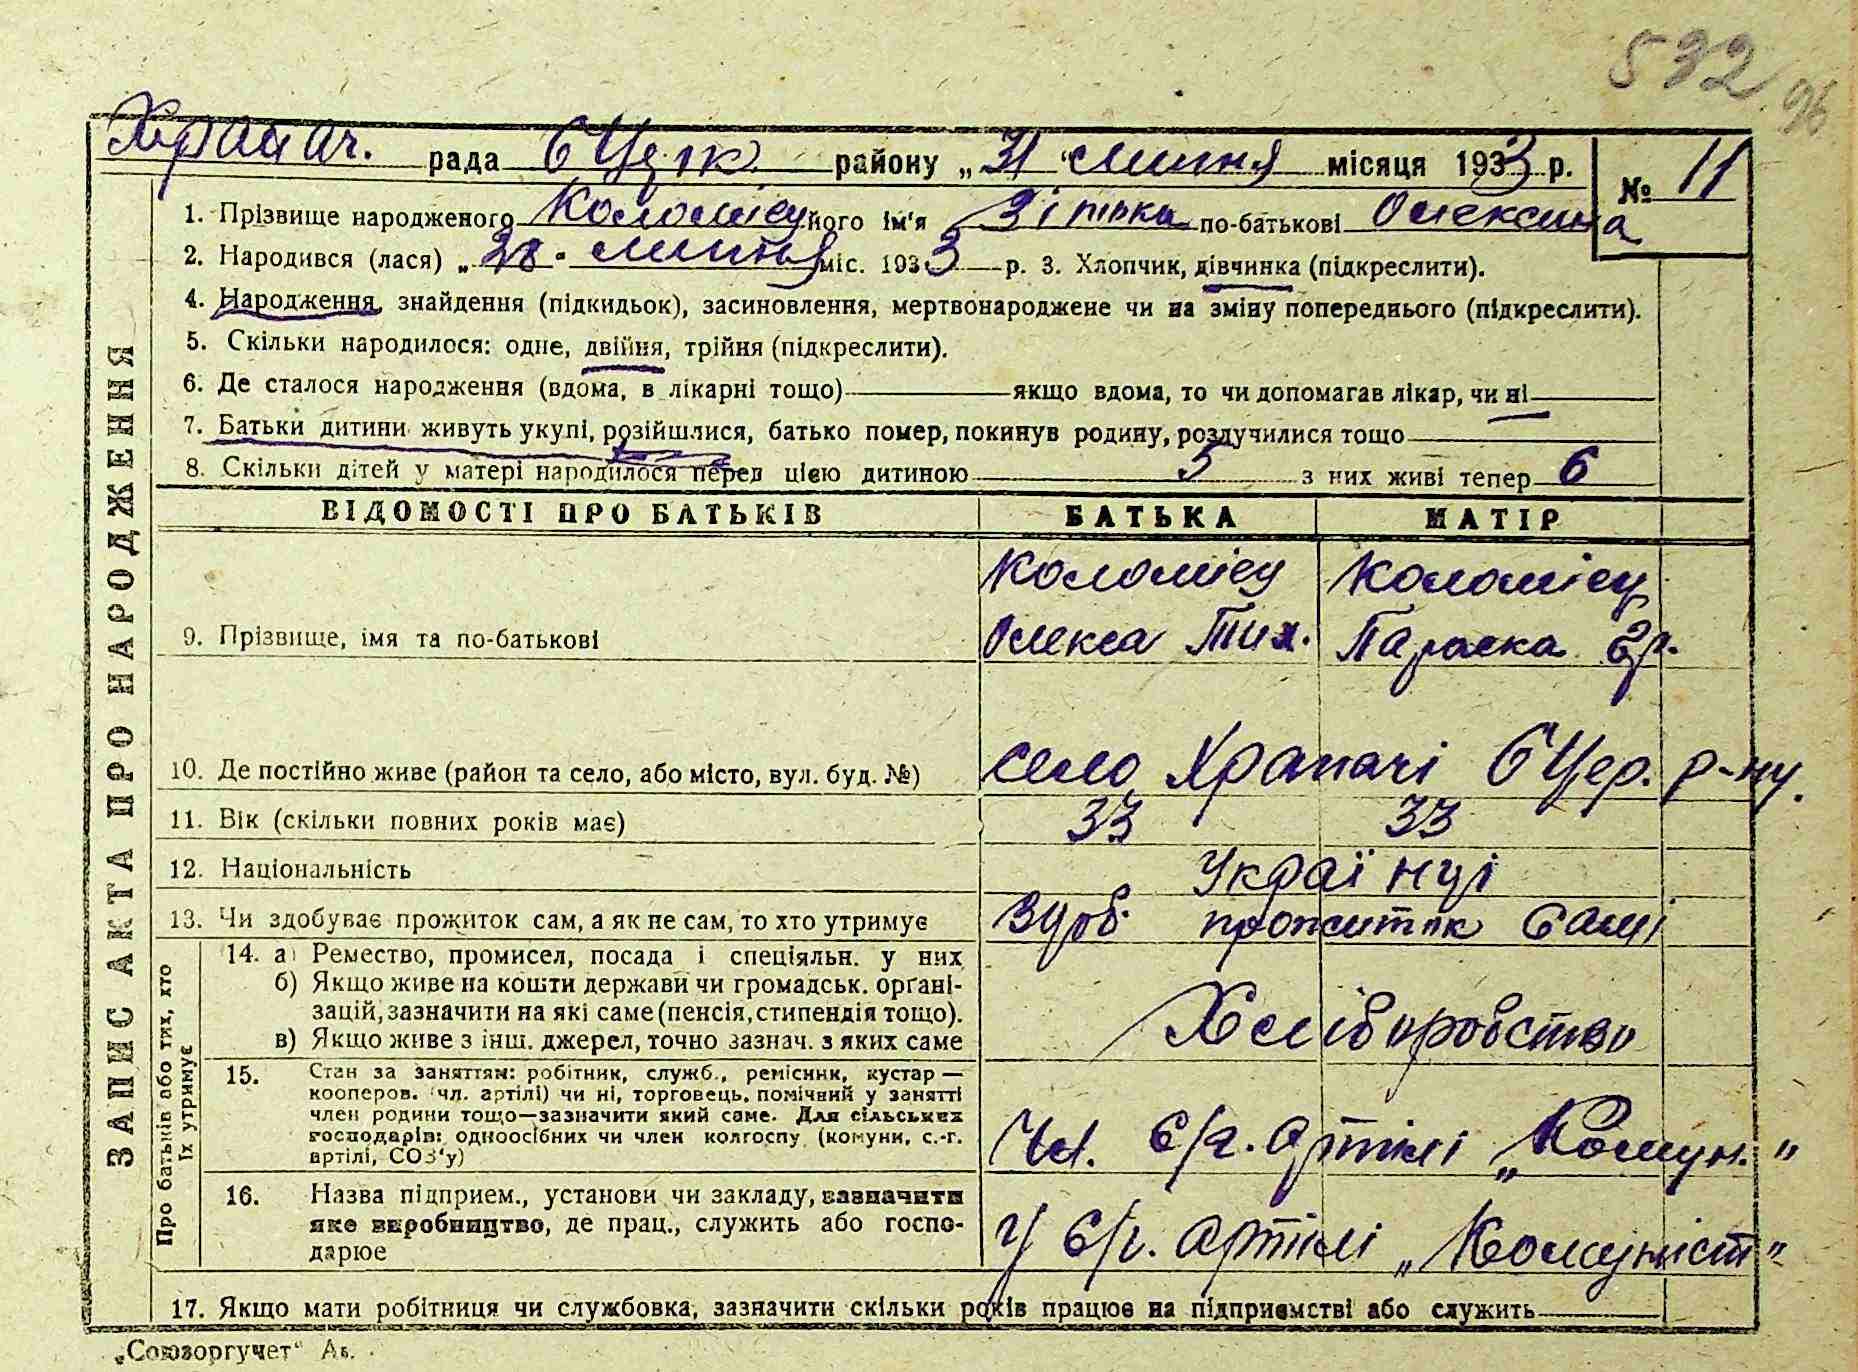 532
96
Храпач. рада БЦерк. району „31“ липня місяця 1933 р. № 11
1. Прізвище народженого Коломієц його ім'я Зінька по-батькові Олексина
2. Народився (лася) „28“ липня міс. 1933 р. 3. Хлопчик, дівчинка (підкреслити).
4. Народження, знайдення (підкидьок), засиновлення, мертвонароджене чи на зміну попереднього (підкреслити).
5. Скільки народилося: одне, двійня, трійня (підкреслити).
6. Де сталося народження (вдома, в лікарні тощо) якщо вдома, то чи допомагав лікар, чи ні
7. Батьки дитини живуть укупі, розійшлися, батько помер, покинув родину, розлучилися тощо
8. Скільки дітей у матері народилося перед цією дитиною 5 з них живі тепер 6
ВІДОМОСТІ ПРО БАТЬКІВ БАТЬКА МАТІР
Коломієц Коломієц
9. Прізвище, імя та по-батькові Олекса Тих. Параска
10. Де постійно живе (район та село, або місто, вул. буд. №) село Храпачі БЦер. р-ну.
11. Вік (скільки повних років має) 33 33
12. Національність Українці
13. Чи здобуває прожиток сам, а як не сам, то хто утримує Здоб. прожиток самі
14. а) Ремество, промисел, посада і спеціяльн. у них
б) Якщо живе на кошти держави чи громадськ. органі-
зацій, зазначити на які саме (пенсія, стипендія тощо).
в) Якщо живе з інш. джерел, точно зазнач. з яких саме
Хліборобство
15. Стан за заняттям: робітник, служб., ремісник, кустар —
кооперов. (чл. артілі) чи ні, торговець, помічний у занятті
член родини тощо—зазначити який саме. Для сільських
господарів: одноосібних чи член колгоспу (комуни, с.-г.
артілі, СОЗ'у)
Чл. с/г. артілі „Комун.“
16. Назва підприєм., установи чи закладу, зазначити
яке виробництво, де прац., служить або госпо-
дарює
У с/г. артілі „Комуніст“
17. Якщо мати робітниця чи службовка, зазначити скільки років працює на підприємстві або служить
ЗАПИС АКТА ПРО НАРОДЖЕННЯ
Про батьків або тих, хто
їх утримує
„Союзоргучет“